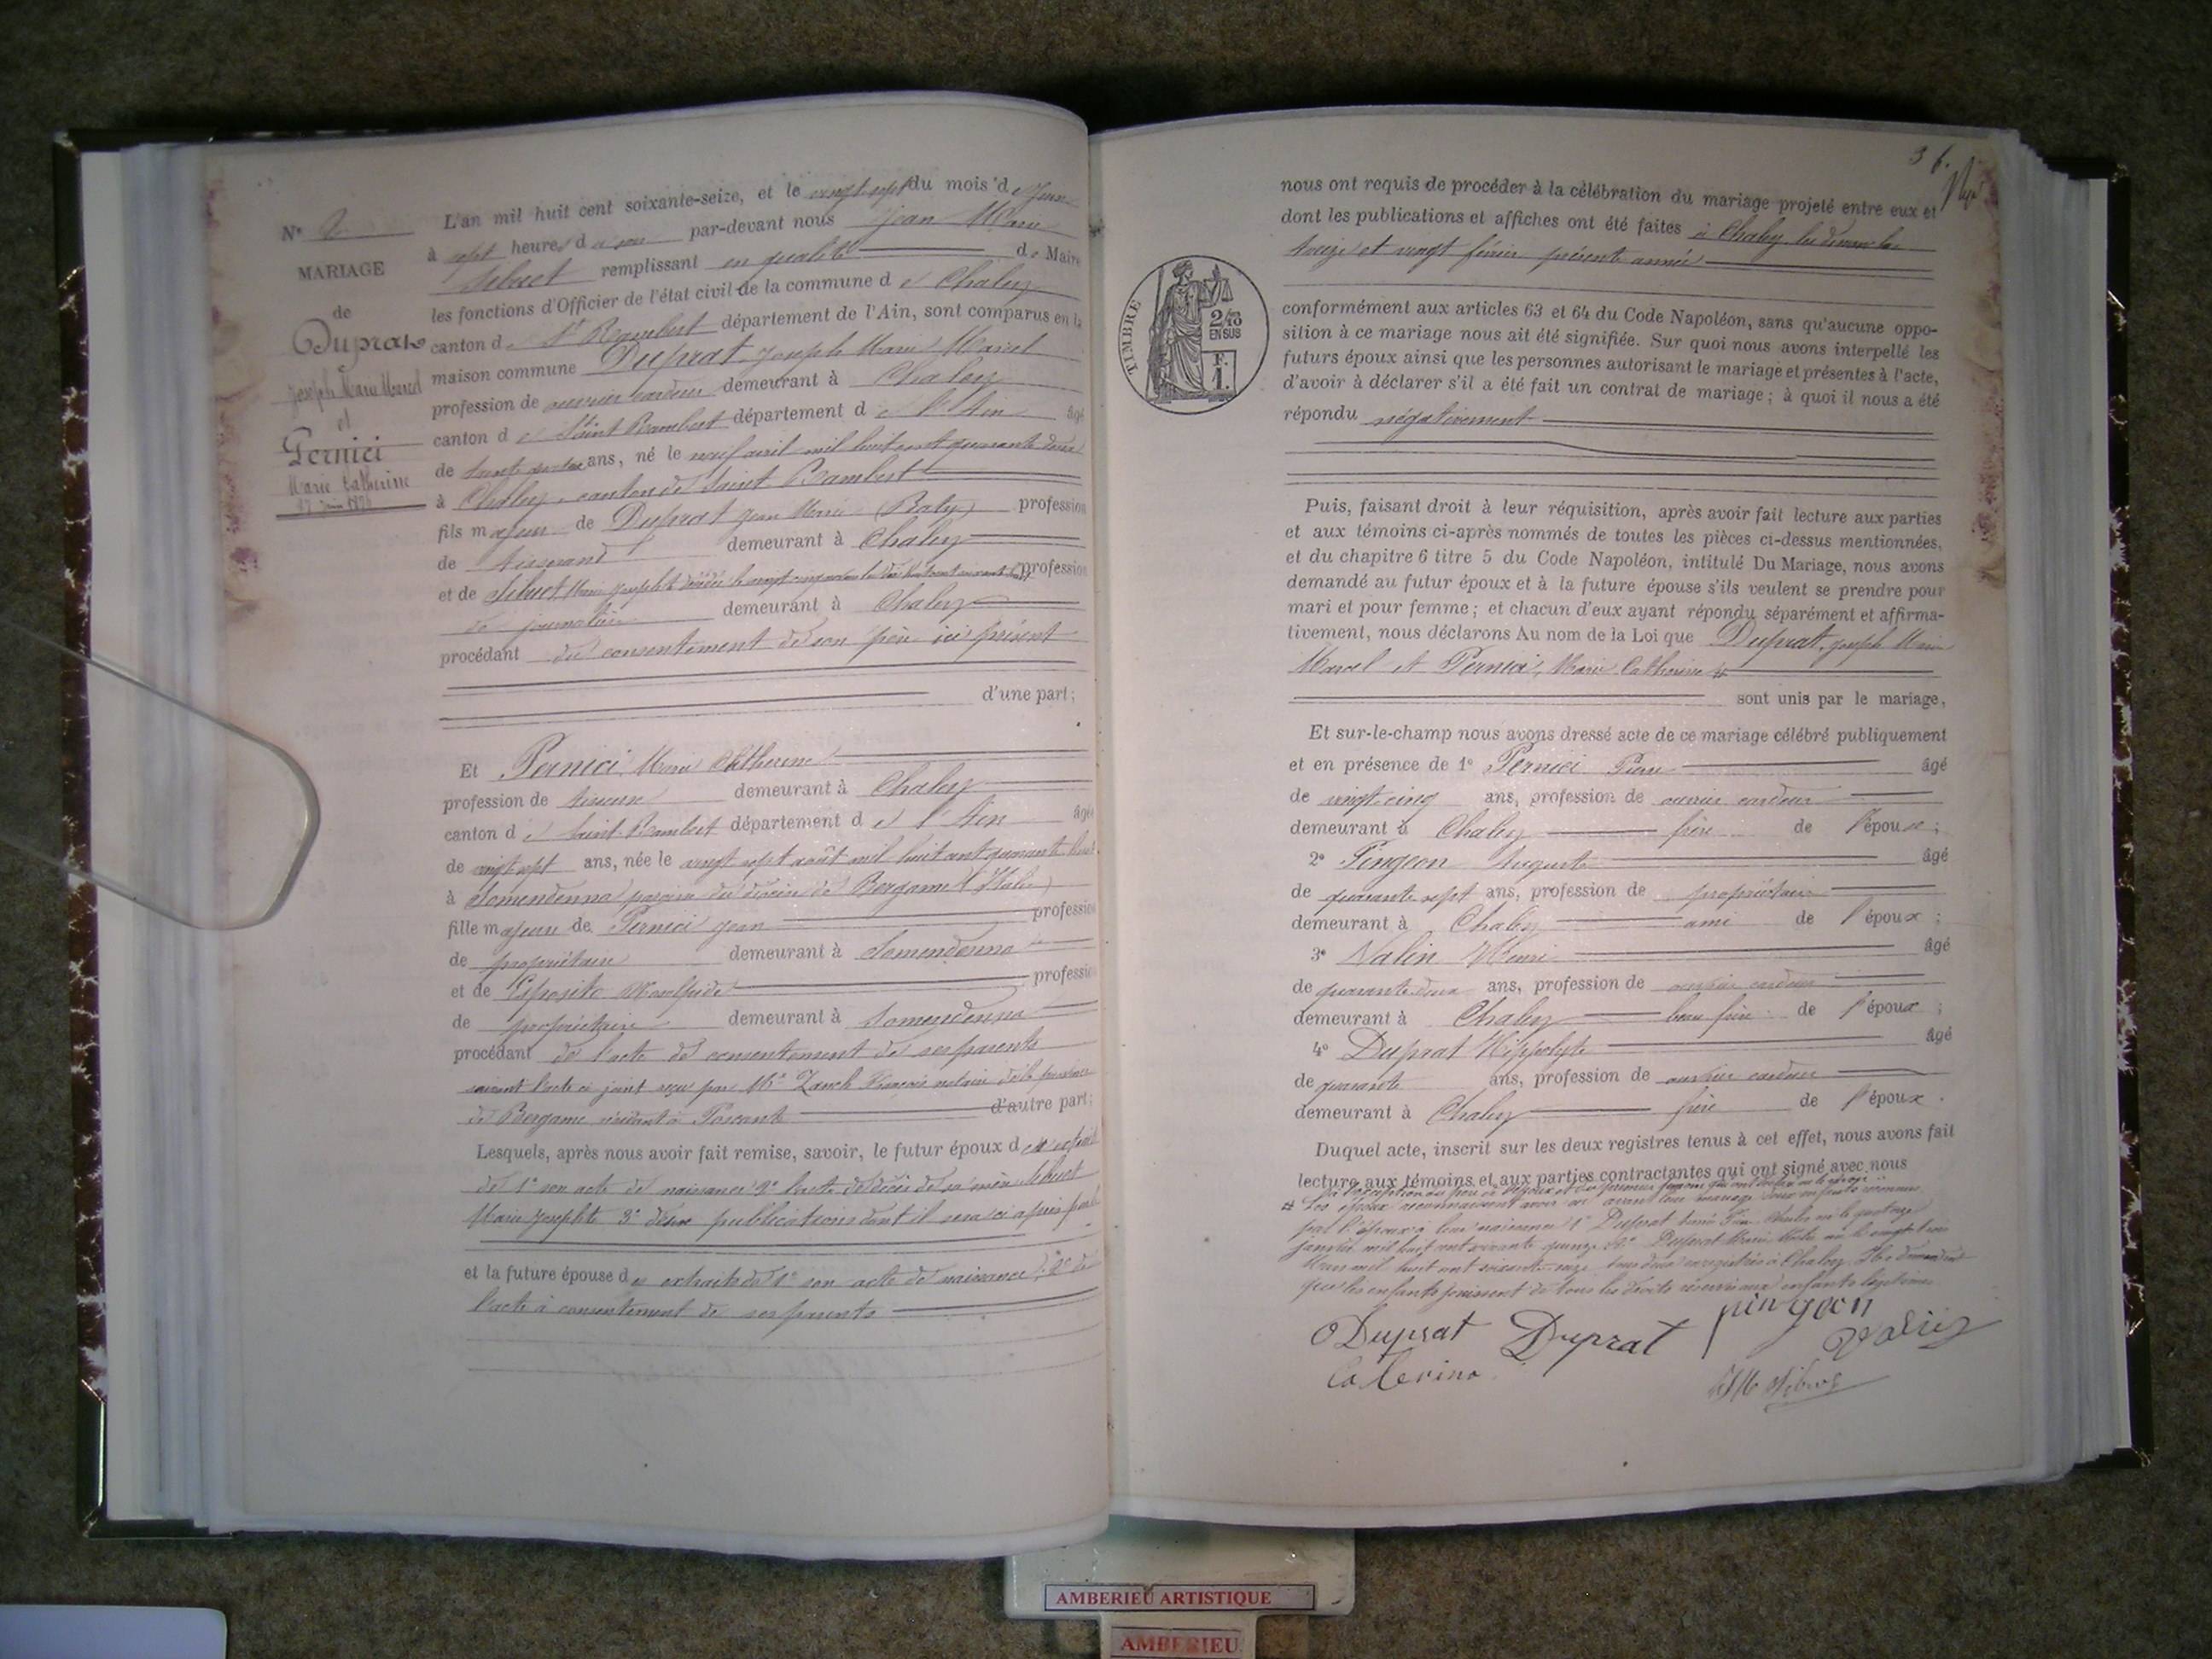 N° 2
MARIAGE
de
Duprat
Joseph Marie Marcel
et
Pernici
Marie Catherine
27 Juin 1876
L'an mil huit cent soixante-seize, et le vingt sept du mois de Juin
à sept heures du soir par-devant nous Jean Marie
Sibuet remplissant en qualité de Maire
les fonctions d'Officier de l'état civil de la commune de Chaley
canton de St Rambert département de l'Ain, sont comparus en la
maison commune Duprat Joseph Marie Marcel
profession de ouvrier cardeur demeurant à Chaley
canton de Saint Rambert département de l'Ain âgé
de trente ans, né le neuf avril mil huit cent quarante deux
à Chaley, canton de Saint Rambert
fils majeur de Duprat Jean Marie (Baby) profession
de tisserand demeurant à Chaley
et de Sibuet Marie Josephte décédée profession
de journalière demeurant à Chaley
procédant du consentement de son père ici présent
d'une part;
Et Pernici Marie Catherine
profession de tisseuse demeurant à Chaley
canton de Saint Rambert département de l'Ain âgée
de vingt sept ans, née le vingt sept août mil huit cent quarante huit
à Somendenna paroisse du diocèse de Bergame (Italie)
fille majeure de Pernici Jean profession
de propriétaire demeurant à Somendenna
et de Esposito profession
de propriétaire demeurant à Somendenna
procédant de l'acte de consentement de ses parents
suivant l'acte ci joint reçu par Me Zanch François notaire de la province
de Bergame résidant à d'autre part;
Lesquels, après nous avoir fait remise, savoir, le futur époux des extraits
de 1° son acte de naissance 2° l'acte de décès de sa mère Sibuet
Marie Josephte 3° deux publications dont il sera ci après parlé
et la future épouse des extraits de 1° son acte de naissance, 2° de
l'acte à consentement de ses parents
36.
nous ont requis de procéder à la célébration du mariage projeté entre eux et
dont les publications et affiches ont été faites à Chaley les dimanches
treize et vingt février présente année
TIMBRE
2/10
EN SUS
F.
1.
conformément aux articles 63 et 64 du Code Napoléon, sans qu'aucune oppo-
sition à ce mariage nous ait été signifiée. Sur quoi nous avons interpellé les
futurs époux ainsi que les personnes autorisant le mariage et présentes à l'acte,
d'avoir à déclarer s'il a été fait un contrat de mariage; à quoi il nous a été
répondu négativement
Puis, faisant droit à leur réquisition, après avoir fait lecture aux parties
et aux témoins ci-après nommés de toutes les pièces ci-dessus mentionnées,
et du chapitre 6 titre 5 du Code Napoléon, intitulé Du Mariage, nous avons
demandé au futur époux et à la future épouse s'ils veulent se prendre pour
mari et pour femme; et chacun d'eux ayant répondu séparément et affirma-
tivement, nous déclarons Au nom de la Loi que Duprat, Joseph Marie
Marcel et Pernici, Marie Catherine #
sont unis par le mariage,
Et sur-le-champ nous avons dressé acte de ce mariage célébré publiquement
et en présence de 1° Pernici Pierre âgé
de vingt-cinq ans, profession de ouvrier cardeur
demeurant à Chaley frère de l'épouse;
2° Pingeon Auguste âgé
de quarante sept ans, profession de propriétaire
demeurant à Chaley ami de l'époux;
3° Valin Henri âgé
de quarante deux ans, profession de ouvrier cardeur
demeurant à Chaley beau frère de l'époux;
4° Duprat Hippolyte âgé
de quarante ans, profession de ouvrier cardeur
demeurant à Chaley frère de l'époux.
Duquel acte, inscrit sur les deux registres tenus à cet effet, nous avons fait
lecture aux témoins et aux parties contractantes qui ont signé avec nous
à l'exception du père de l'époux et du premier témoin
# Les époux reconnaissent avoir eu avant leur mariage deux enfants reconnus
par l'époux à leur naissance 1° Duprat né le quatorze
janvier mil huit cent soixante quinze 2° Duprat Marie né le vingt trois
Mars mil huit cent soixante-seize tous deux enregistrés à Chaley. Ils demandent
que les enfants jouissent de tous les droits réservés aux enfants légitimes
Duprat Duprat pingeon
Valin
Caterina
JM Sibuet
AMBERIEU ARTISTIQUE
AMBERIEU